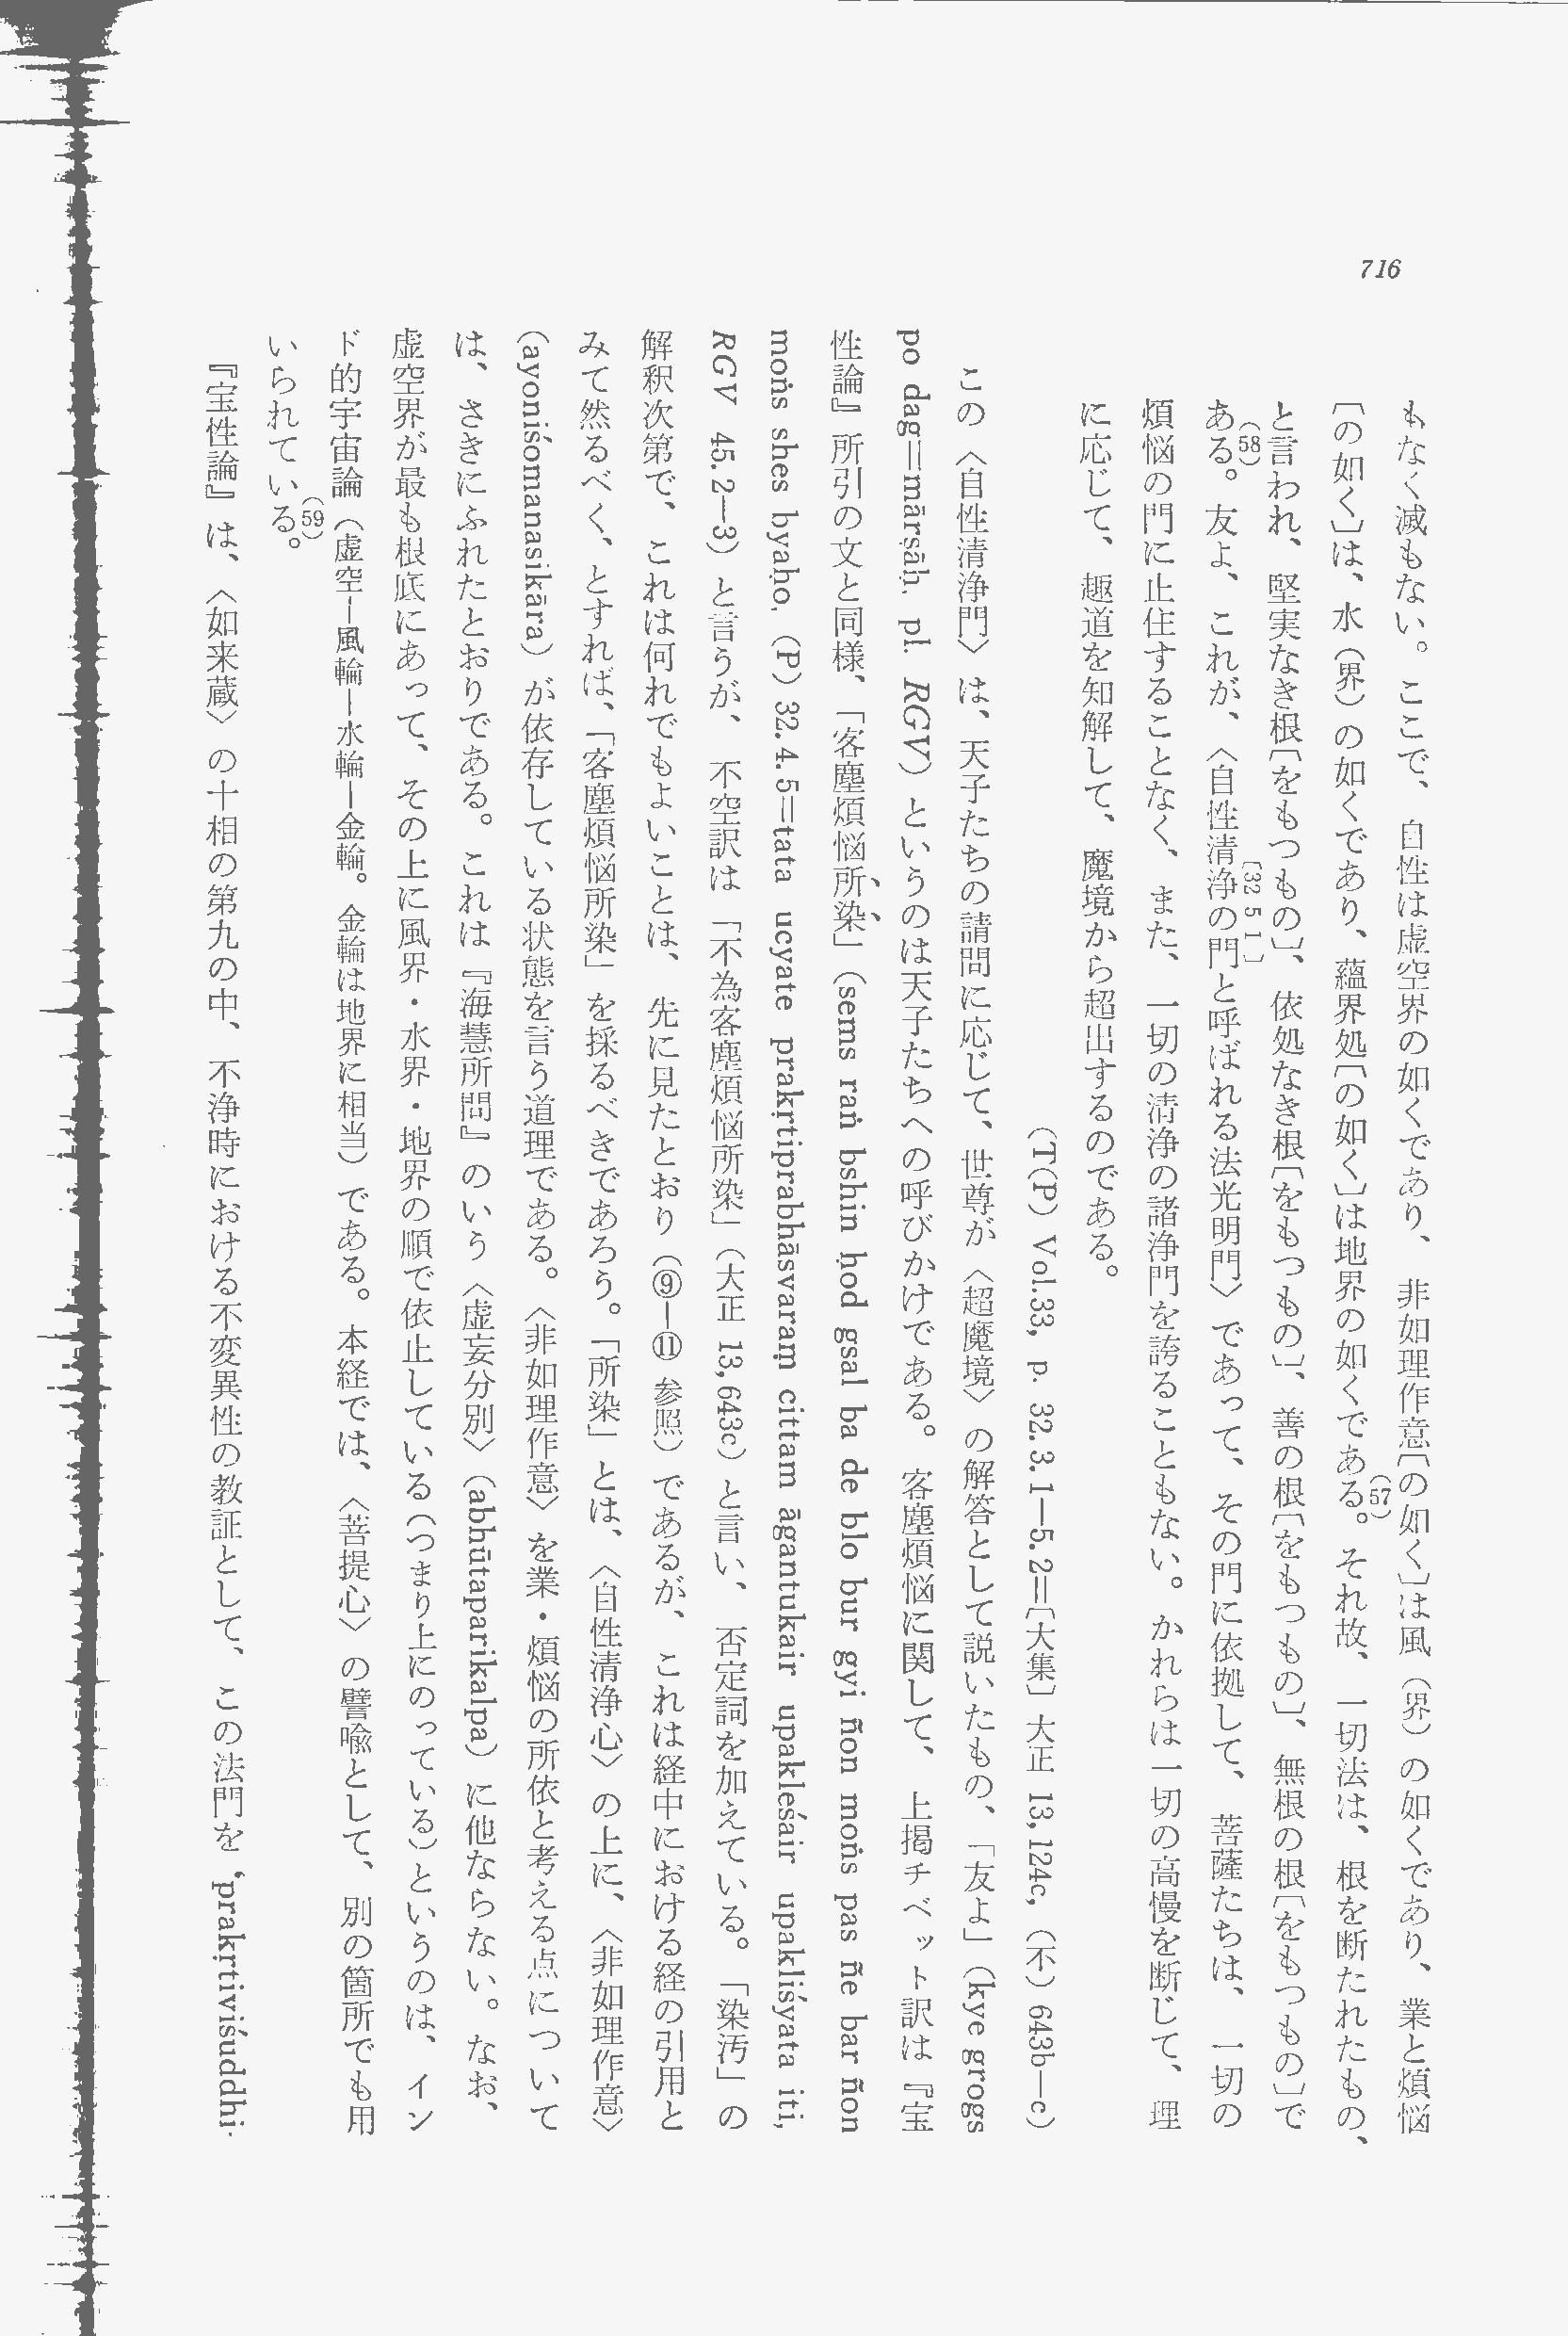 716
もなく減もない。ここで、自性は虚空界の如くであり、非如理作意〔の如く〕は風（界）の如くであり、業と煩悩
〔の如く〕は、水（界）の如くであり、蘊界処〔の如く〕は地界の如くである。(57)それ故、一切法は、根を断たれたもの、
と言われ、堅実なき根〔をもつもの〕、依処なき根〔をもつもの〕、善の根〔をもつもの〕、無根の根〔をもつもの〕で
ある。(58)友よ、これが、〈自性清浄の[32 5 1]門と呼ばれる法光明門〉であって、その門に依拠して、菩薩たちは、一切の
煩悩の門に止住することなく、また、一切の清浄の諸浄門を誇ることもない。かれらは一切の高慢を断じて、理
に応じて、趣道を知解して、魔境から超出するのである。
（T(P) Vol.33, p. 32.3.1—5.2＝〔大集〕大正 13,124c,（不）643b—c）
この〈自性清浄門〉は、天子たちの請問に応じて、世尊が〈超魔境〉の解答として説いたもの、「友よ」（kye grogs
po dag＝mārṣāḥ. pl. RGV）というのは天子たちへの呼びかけである。客塵煩悩に関して、上掲チベット訳は『宝
性論』所引の文と同様、「客塵煩悩所染」（sems raṅ bshin ḥod gsal ba de blo bur gyi ñon moṅs pas ñe bar ñon
moṅs shes byaḥo,（P）32.4.5＝tata ucyate prakṛtiprabhāsvaraṃ cittam āgantukair upakleśair upakliśyata iti,
RGV 45.2—3）と言うが、不空訳は「不為客塵煩悩所染」（大正 13,643c）と言い、否定詞を加えている。「染汚」の
解釈次第で、これは何れでもよいことは、先に見たとおり（⑨—⑪ 参照）であるが、これは経中における経の引用と
みて然るべく、とすれば、「客塵煩悩所染」を採るべきであろう。「所染」とは、〈自性清浄心〉の上に、〈非如理作意〉
（ayoniśomanasikāra）が依存している状態を言う道理である。〈非如理作意〉を業・煩悩の所依と考える点について
は、さきにふれたとおりである。これは『海慧所問』のいう〈虚妄分別〉（abhūtaparikalpa）に他ならない。なお、
虚空界が最も根底にあって、その上に風界・水界・地界の順で依止している（つまり上にのっている）というのは、イン
ド的宇宙論（虚空—風輪—水輪—金輪。金輪は地界に相当）である。本経では、〈菩提心〉の譬喩として、別の箇所でも用
いられている。(59)
『宝性論』は、〈如来蔵〉の十相の第九の中、不浄時における不変異性の教証として、この法門を ‘prakṛtiviśuddhi-